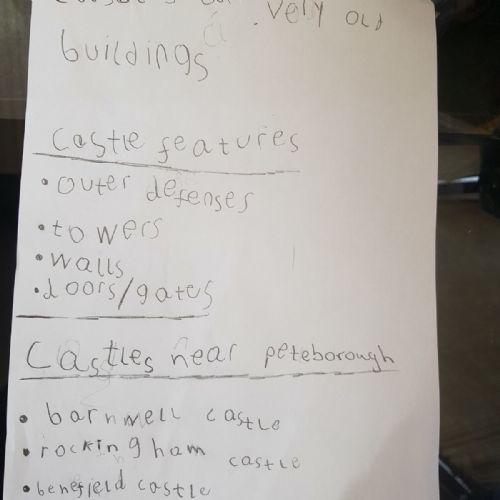 very old
buildings
Castle features
• outer defenses
• towers
• walls
• doors/gates
Castles near peteborough
• barnwell castle
• rockingham castle
• benefield castle